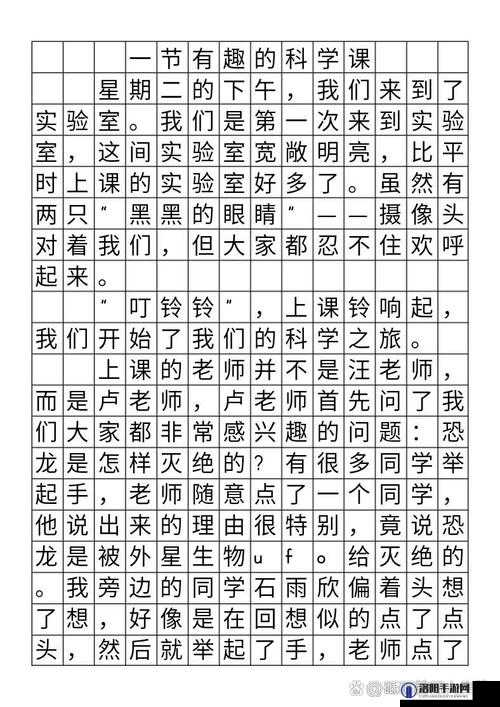 一节有趣的科学课
星期二的下午，我们来到了
实验室。我们是第一次来到实验
室，这间实验室宽敞明亮，比平
时上课的实验室好多了。虽然有
两只“黑黑的眼睛”——摄像头
对着我们，但大家都忍不住欢呼
起来。
“叮铃铃”，上课铃响起，
我们开始了我们的科学之旅。
上课的老师并不是汪老师，
而是卢老师，卢老师首先问了我
们大家都非常感兴趣的问题：恐
龙是怎样灭绝的？有很多同学举
起手，老师随意点了一个同学，
他说出来的理由很特别，竟说恐
龙是被外星生物ufo给灭绝的
。我旁边的同学石雨欣偏着头想
了想，好像是在回想似的点了点
头，然后就举起了手，老师点了
洛阳手游网